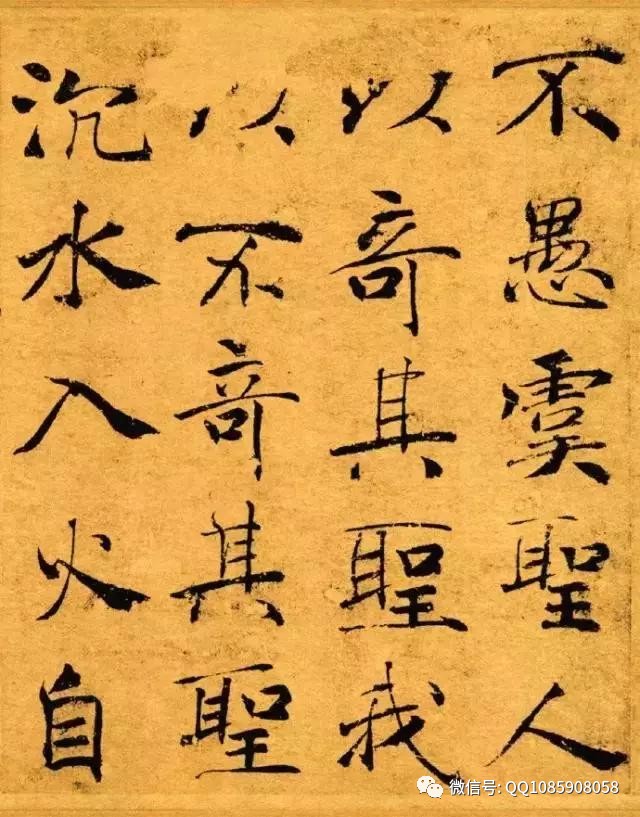 不愚虞聖人
以奇其聖我
以不奇其聖
沉水入火自
微信号: QQ1085908058